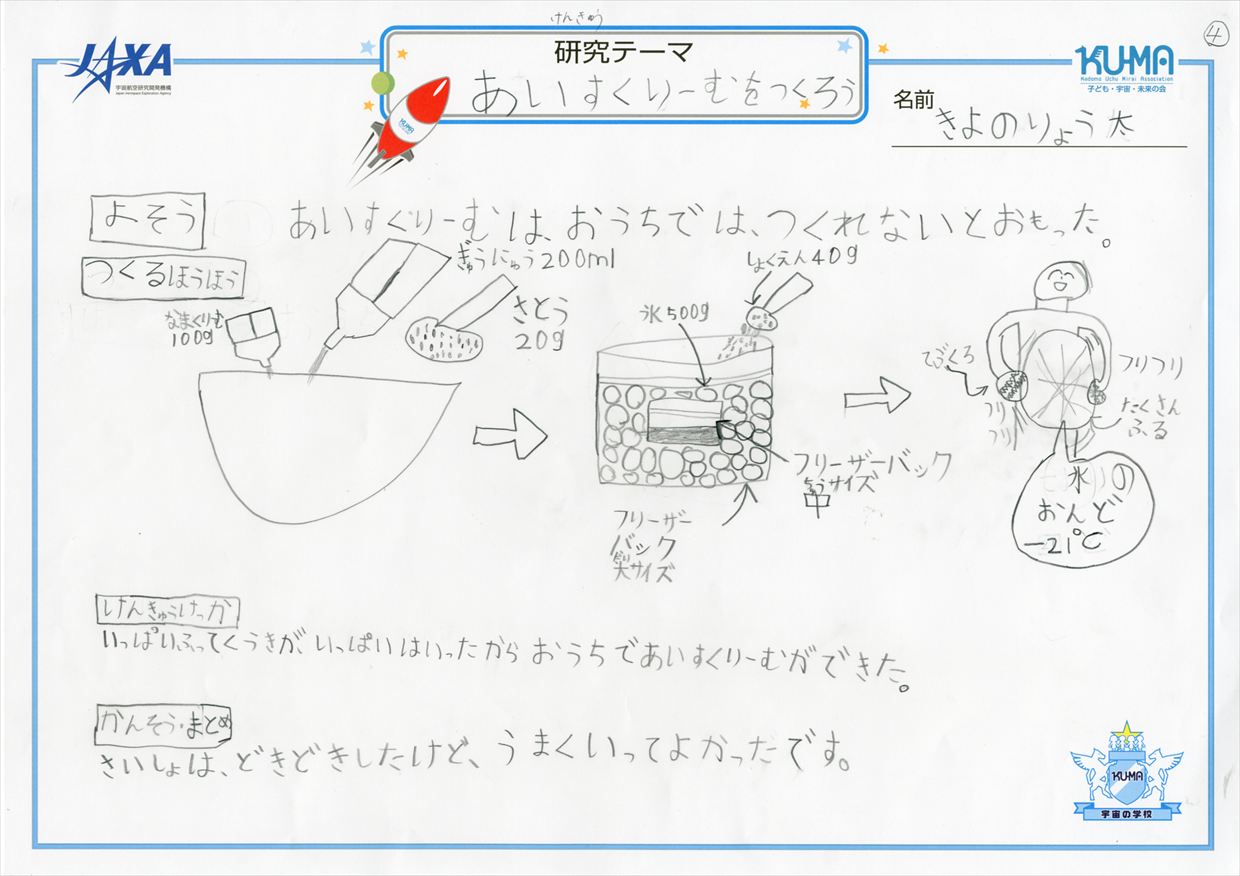 ④
JAXA
宇宙航空研究開発機構
Japan Aerospace Exploration Agency
けんきゅう
研究テーマ
あいすくりーむをつくろう
KU-MA
Kodomo Uchu Mirai Association
子ども・宇宙・未来の会
名前
きよのりょう太
よそう
あいすくりーむは、おうちでは、つくれないとおもった。
つくるほうほう
なまくりむ
100g
ぎゅうにゅう200ml
さとう
20g
しょくえん40g
氷500g
フリーザーバック
ちゅうサイズ
中
フリーザー
バック
大サイズ
てぶくろ
フリフリ
フリ
フリ
たくさん
ふる
氷の
おんど
-21℃
けんきゅうけっか
いっぱいふってくうきが、いっぱいはいったからおうちであいすくりーむができた。
かんそう・まとめ
さいしょは、どきどきしたけど、うまくいってよかったです。
KUMA
KU-MA
宇宙の学校